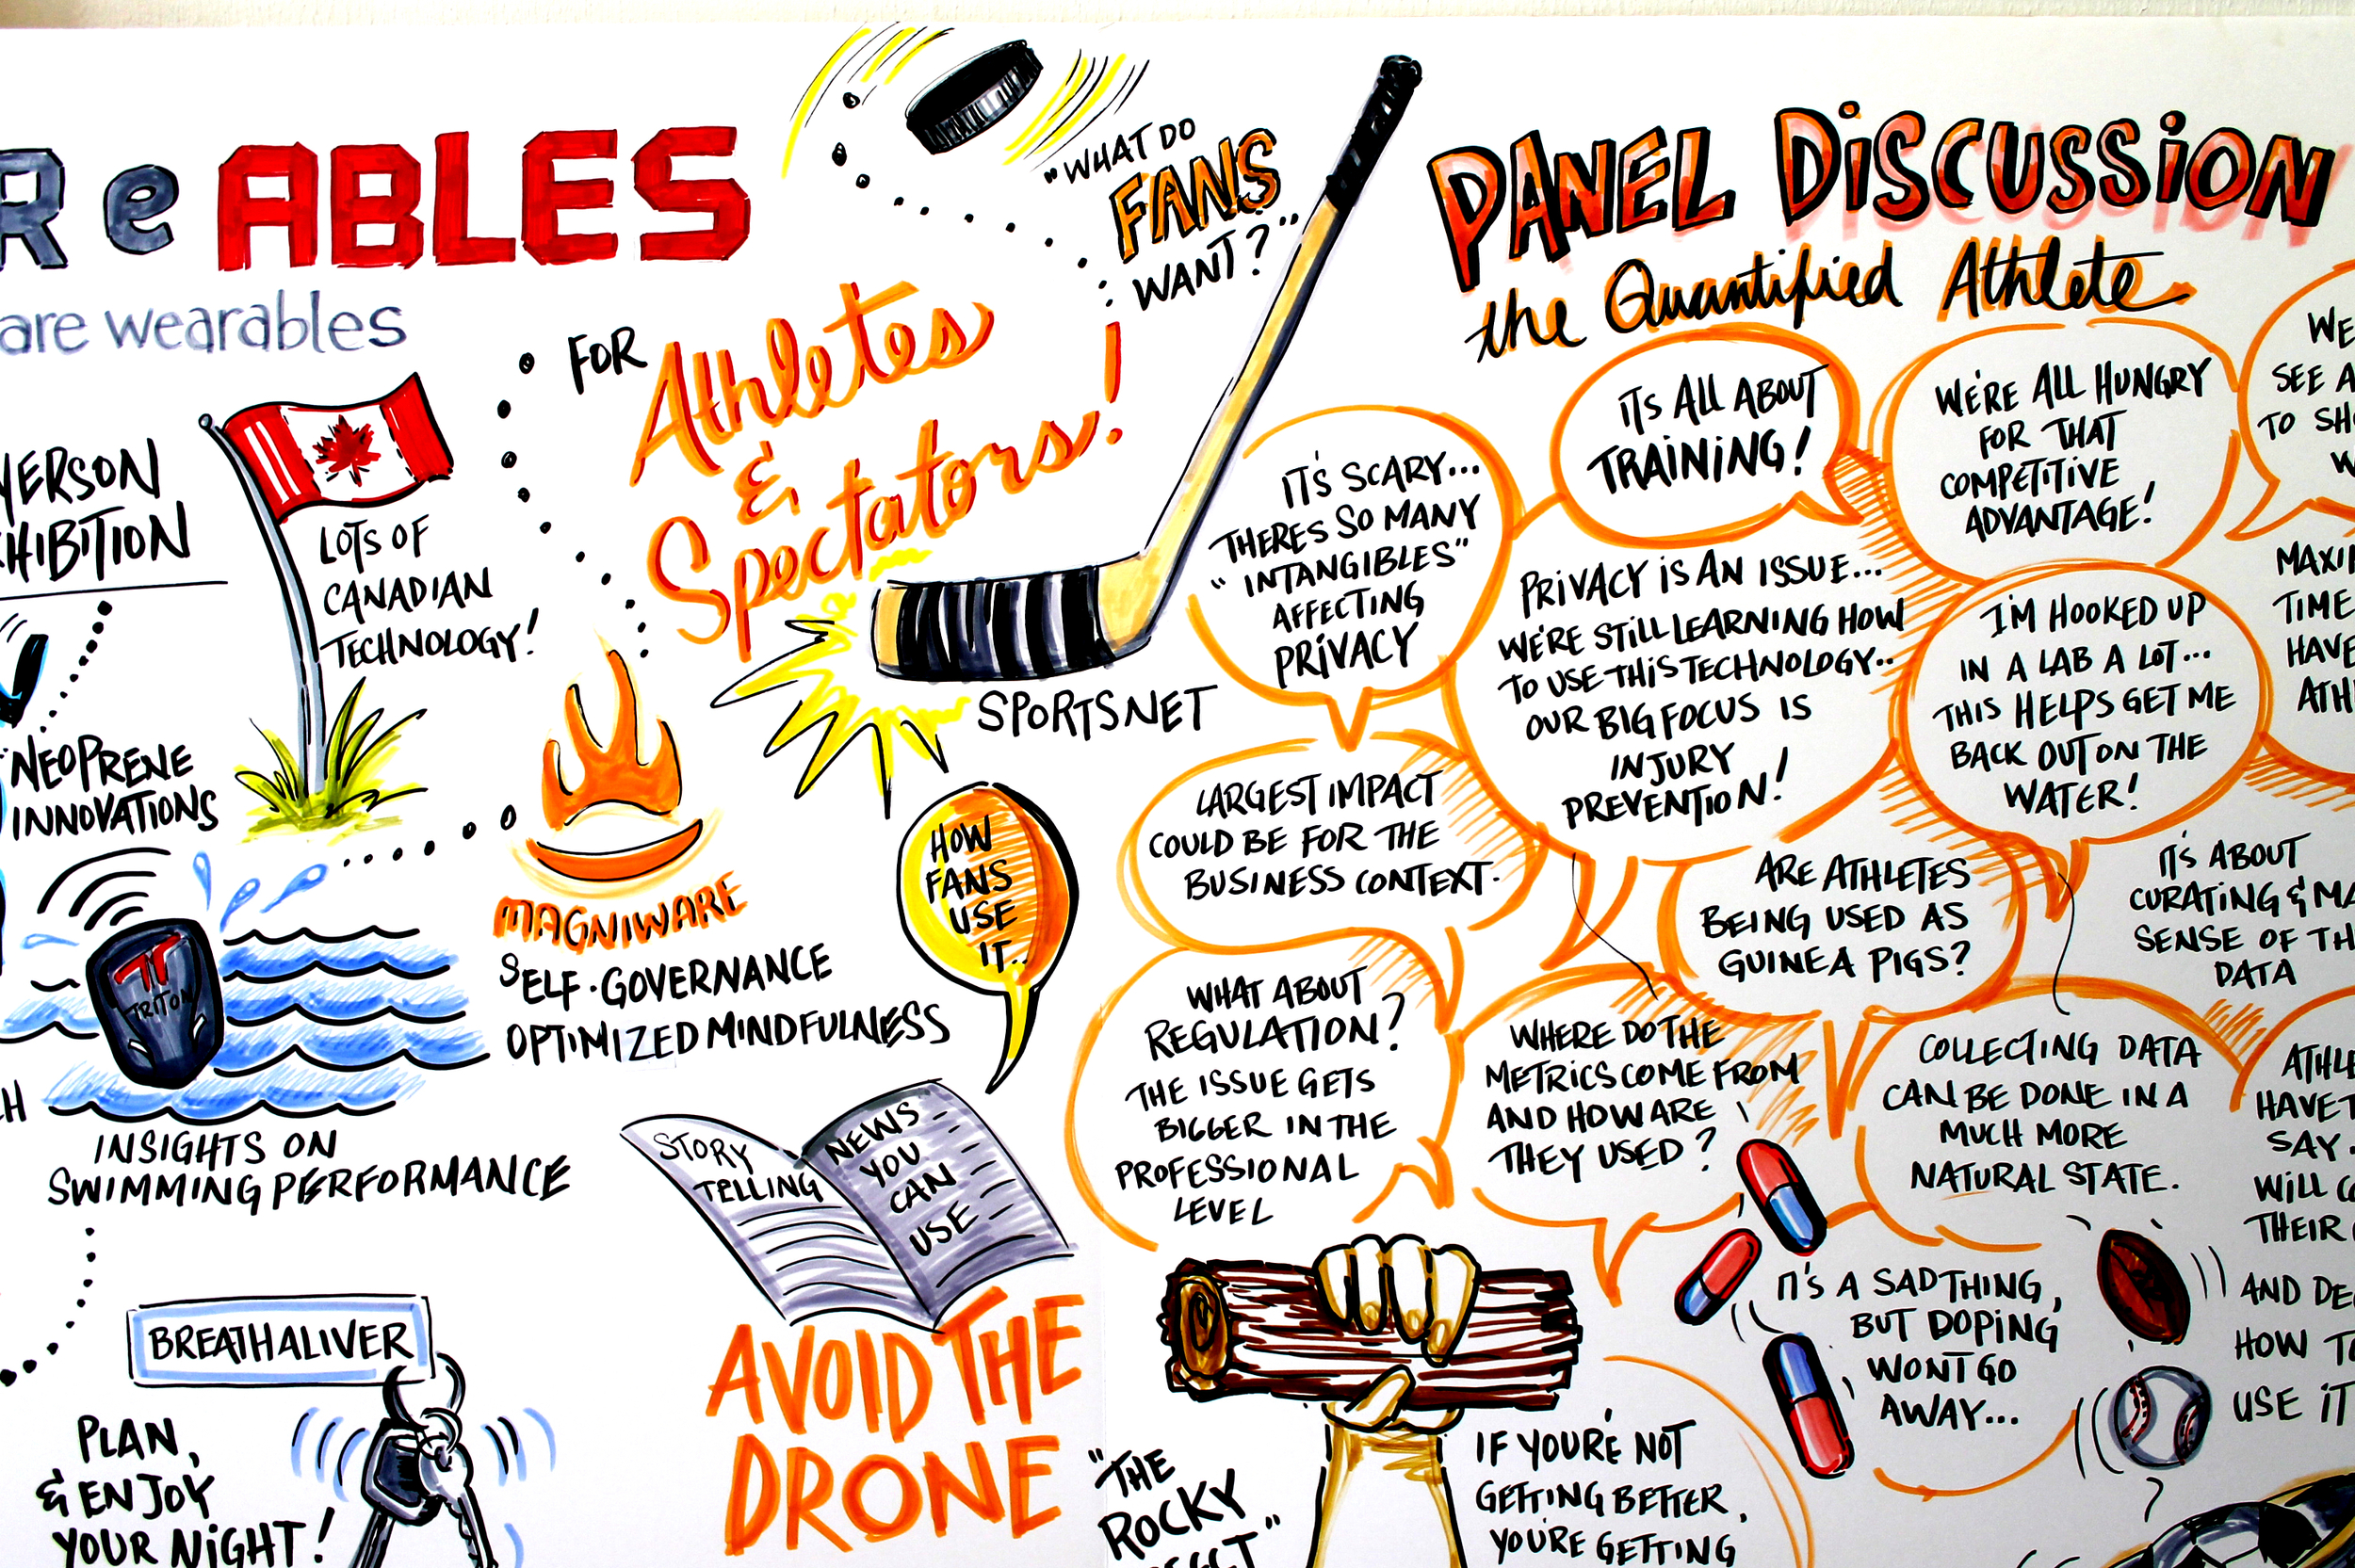 R e ABLES
are wearables
YERSON
HIBITION
LOTS OF
CANADIAN
TECHNOLOGY!
NEOPRENE
INNOVATIONS
TRITON
INSIGHTS ON
SWIMMING PERFORMANCE
BREATHALIVER
PLAN,
& ENJOY
YOUR NIGHT!
FOR
Athletes
&
Spectators!
"WHAT DO
FANS
WANT?"
SPORTSNET
MAGNIWARE
SELF-GOVERNANCE
OPTIMIZED MINDFULNESS
HOW
FANS
USE
IT..
STORY
TELLING
NEWS
YOU
CAN
USE
AVOID THE
DRONE
PANEL DISCUSSION
the Quantified Athlete
IT'S SCARY...
THERES SO MANY
"INTANGIBLES"
AFFECTING
PRIVACY
ITS ALL ABOUT
TRAINING!
WE'RE ALL HUNGRY
FOR THAT
COMPETITIVE
ADVANTAGE!
WE
SEE A
TO SH
W
PRIVACY IS AN ISSUE...
WE'RE STILL LEARNING HOW
TO USE THIS TECHNOLOGY..
OUR BIG FOCUS IS
INJURY
PREVENTION!
I'M HOOKED UP
IN A LAB A LOT...
THIS HELPS GET ME
BACK OUT ON THE
WATER!
MAXI
TIME
HAVE
ATH
LARGEST IMPACT
COULD BE FOR THE
BUSINESS CONTEXT.
ARE ATHLETES
BEING USED AS
GUINEA PIGS?
IT'S ABOUT
CURATING & MA
SENSE OF TH
DATA
WHAT ABOUT
REGULATION?
THE ISSUE GETS
BIGGER IN THE
PROFESSIONAL
LEVEL
WHERE DO THE
METRICS COME FROM
AND HOW ARE
THEY USED?
COLLECTING DATA
CAN BE DONE IN A
MUCH MORE
NATURAL STATE.
ATHLE
HAVE T
SAY.
WILL C
THEIR
IT'S A SAD THING,
BUT DOPING
WONT GO
AWAY...
AND DE
HOW TO
USE IT
"THE
ROCKY
IF YOU'RE NOT
GETTING BETTER,
YOU'RE GETTING